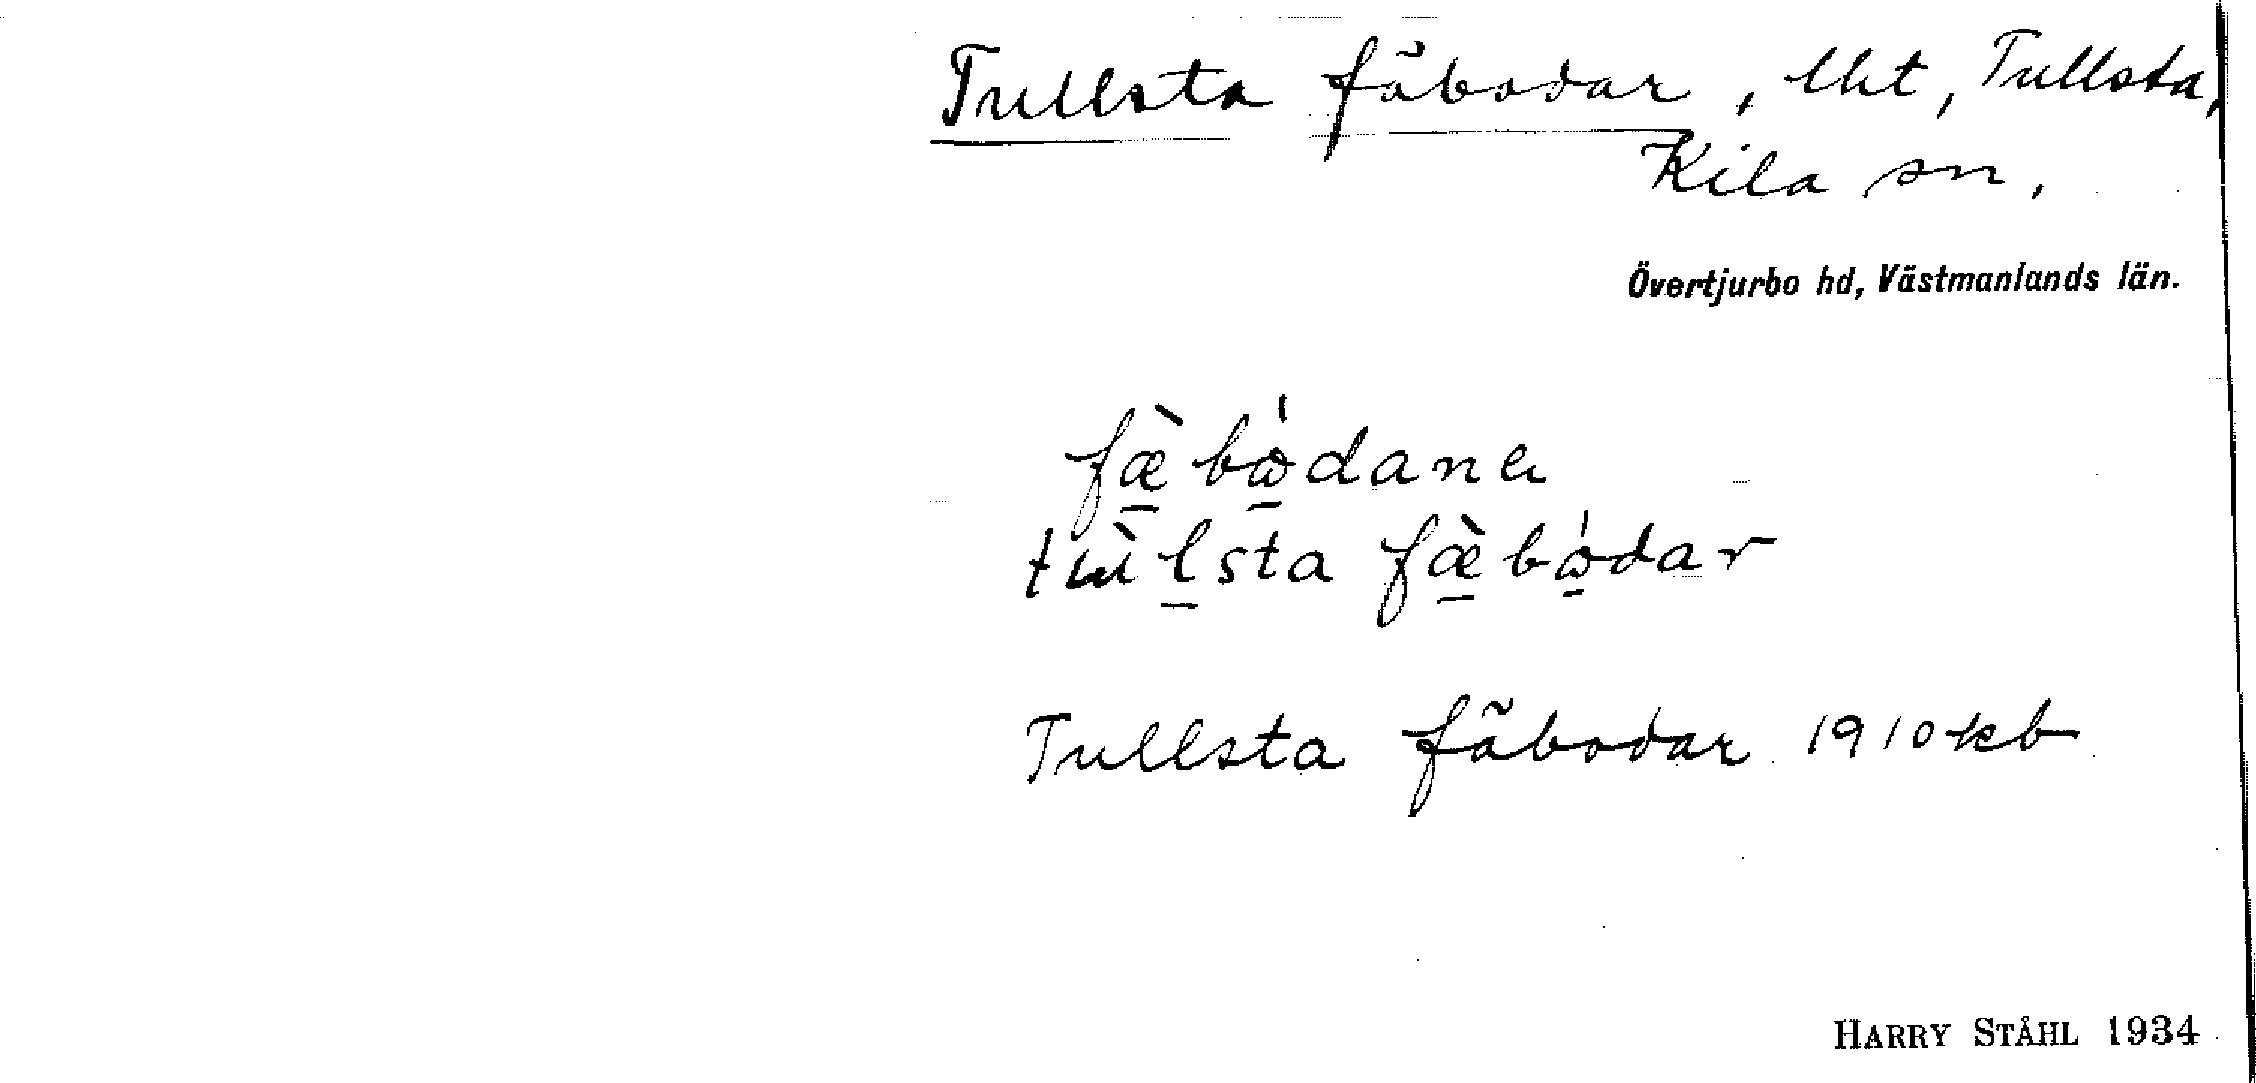 Tullsta fäbodar, lht, Tullsta,
Kila sn.
Övertjurbo hd, Västmanlands län.
fæ̀bὼdana
tuı̀lsta fæ̀bὼdar
Tullsta fäbodar 1910 kb
HARRY STÅHL 1934